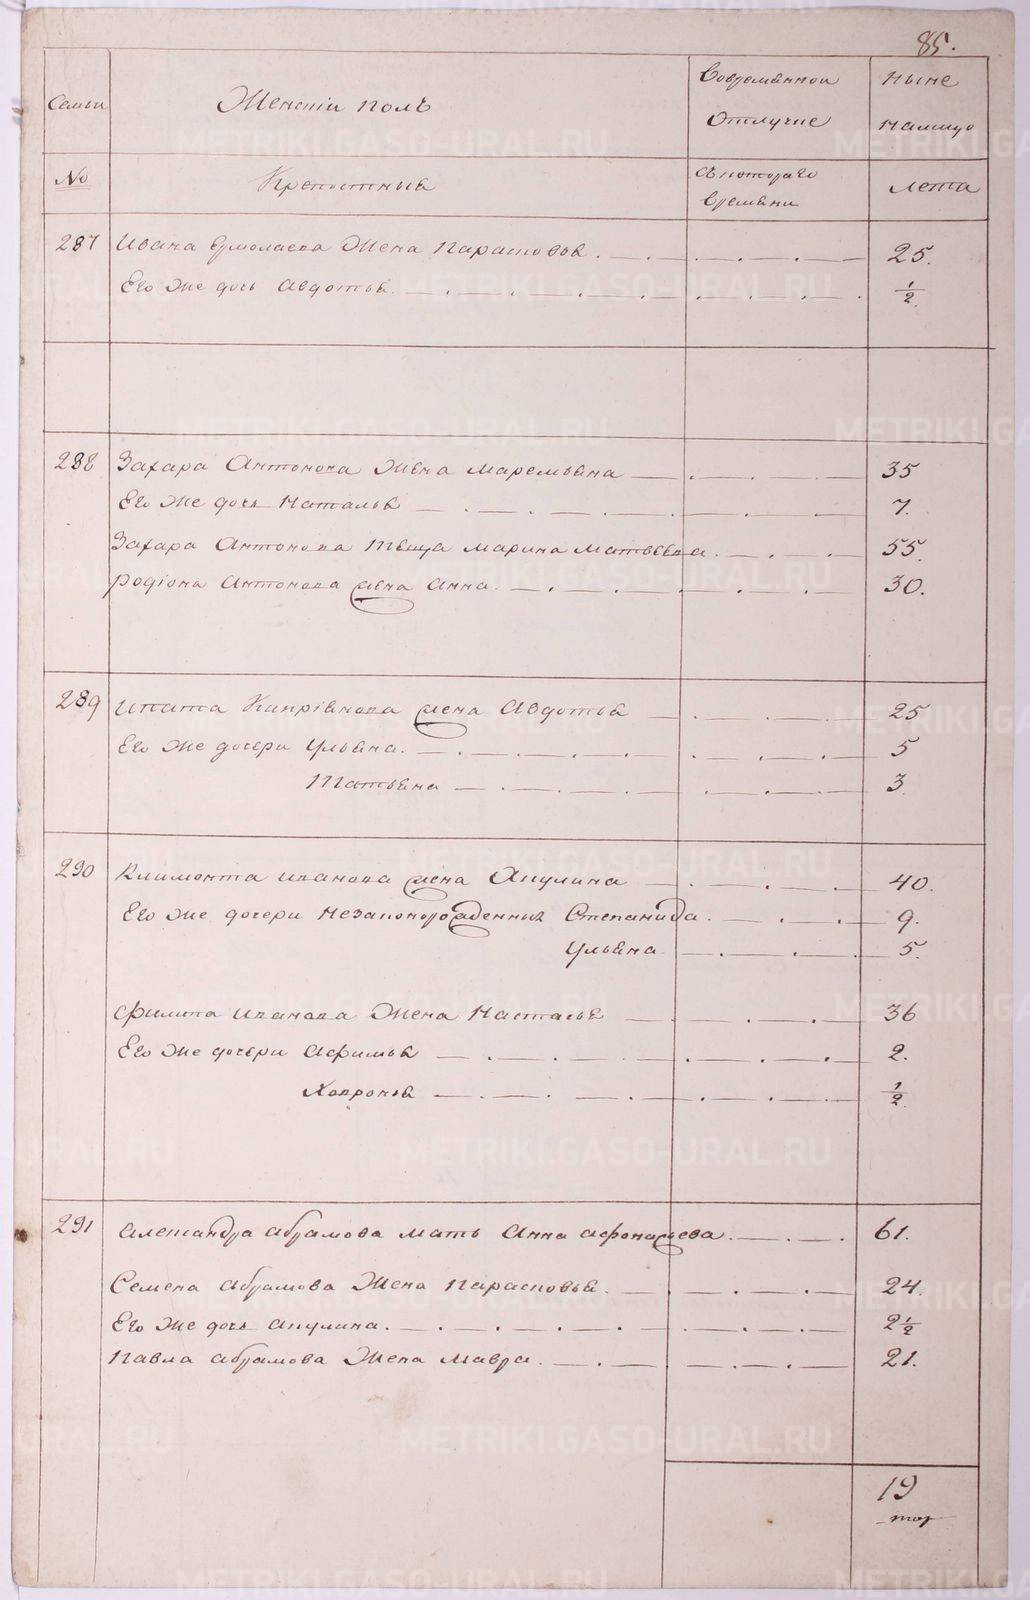 85.
Семьи Женскiй полъ Во временной отлучке ныне на лицо
№ Крепостные съ котораго времени лета
287 Ивана Ермолаева Жена Парасковья 25.
Его же дочь Авдотья 1/2
288 Захара Антонова Жена Маремьяна 35
Его же дочь Наталья 7.
Захара Антонова Теща Марина Матвѣева 55.
Родiона Антонова жена Анна 30.
289 Ипата Кипрiянова жена Авдотья 25
Его же дочери Ульяна 5
Татьяна 3
290 Климонта Иванова жена Акулина 40.
Его же дочери незаконорожденныя Степанида 9.
Ульяна 5.
Филипа Иванова Жена Настасья 36
Его же дочери Афимья 2.
Хавронья 1/2
291 Александра Абрамова мать Анна Афонасьева 61.
Семена Абрамова Жена Парасковья 24.
Его же дочь Акулина 2 1/2
Павла Абрамова Жена Мавра 21.
19
METRIKI.GASO-URAL.RU